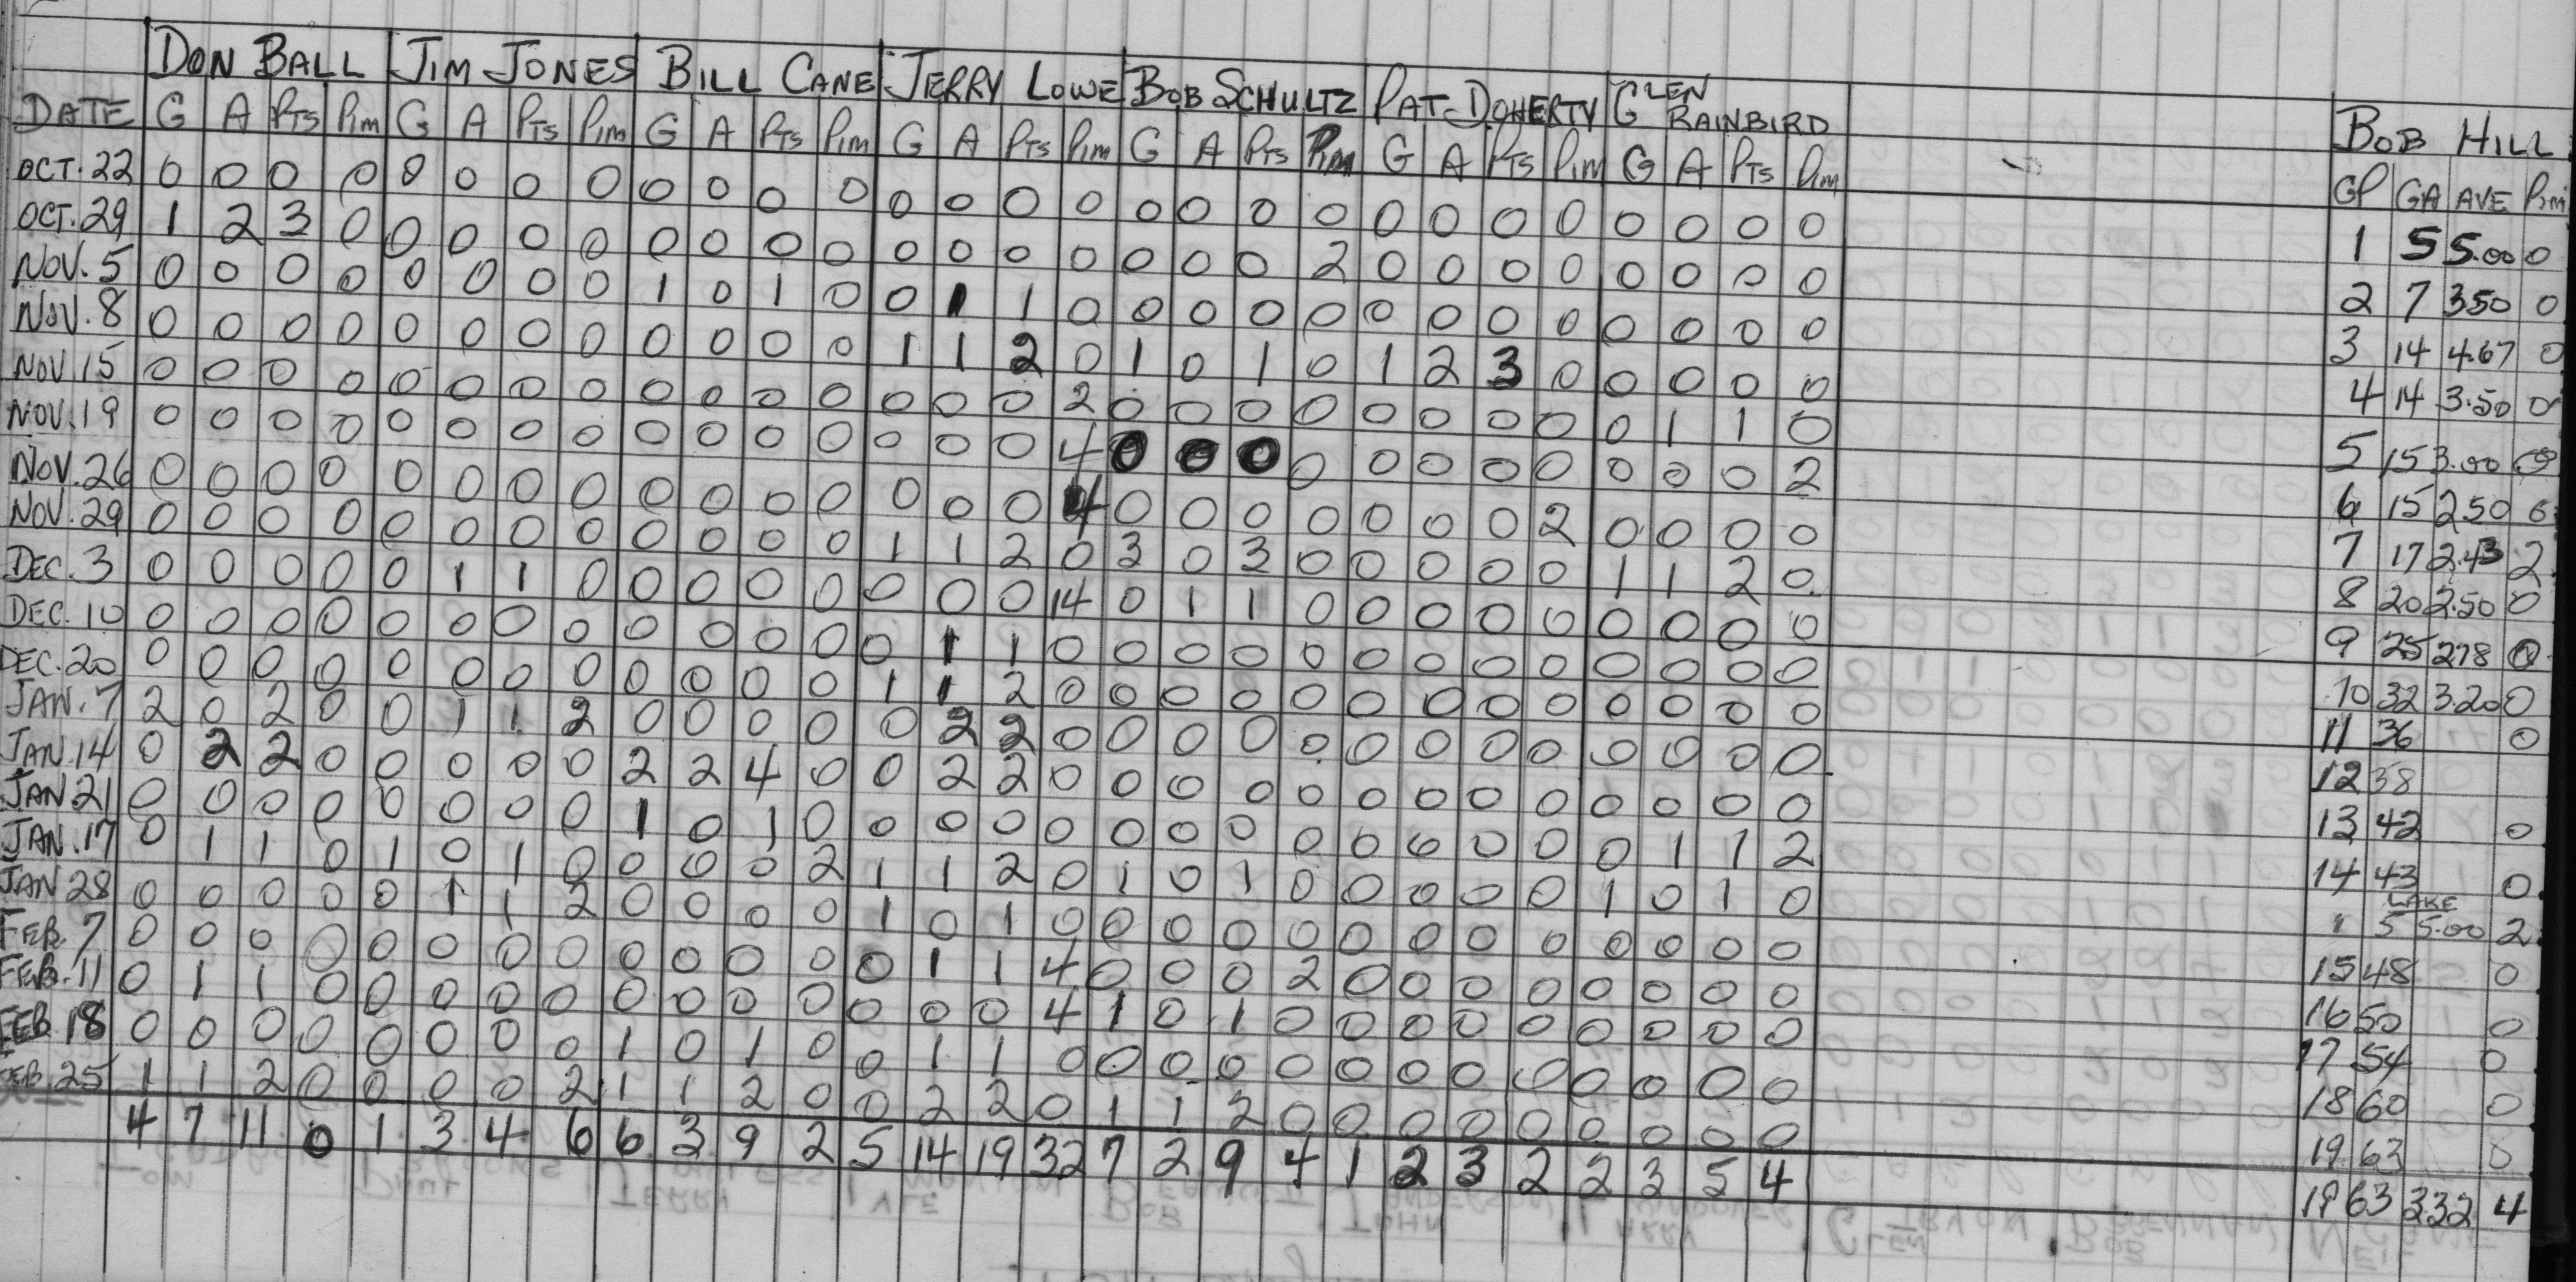 DON BALL JIM JONES BILL CANE JERRY LOWE BOB SCHULTZ PAT DOHERTY GLEN RAINBIRD BOB HILL
DATE G A PTS PIM G A PTS PIM G A PTS PIM G A PTS PIM G A PTS PIM G A PTS PIM G A PTS PIM GP GA AVE PIM
OCT. 22 0 0 0 0 0 0 0 0 0 0 0 0 0 0 0 0 0 0 0 0 0 0 0 0 0 0 0 0 1 5 5.00 0
OCT. 29 1 2 3 0 0 0 0 0 0 0 0 0 0 0 0 0 0 0 0 2 0 0 0 0 0 0 0 0 2 7 3.50 0
NOV. 5 0 0 0 0 0 0 0 0 1 0 1 0 0 1 1 0 0 0 0 0 0 0 0 0 0 0 0 0 3 14 4.67 0
NOV. 8 0 0 0 0 0 0 0 0 0 0 0 0 1 1 2 0 1 0 1 0 1 2 3 0 0 0 0 0 4 14 3.50 0
NOV. 15 0 0 0 0 0 0 0 0 0 0 0 0 0 0 0 2 0 0 0 0 0 0 0 0 0 1 1 0 5 15 3.00 0
NOV. 19 0 0 0 0 0 0 0 0 0 0 0 0 0 0 0 4 0 0 0 0 0 0 0 0 0 0 0 2 6 15 2.50 0
NOV. 26 0 0 0 0 0 0 0 0 0 0 0 0 0 0 0 4 0 0 0 0 0 0 0 2 0 0 0 0 7 17 2.43 2
NOV. 29 0 0 0 0 0 0 0 0 0 0 0 0 1 1 2 0 3 0 3 0 0 0 0 0 1 1 2 0 8 20 2.50 0
DEC. 3 0 0 0 0 0 1 1 0 0 0 0 0 0 0 0 14 0 1 1 0 0 0 0 0 0 0 0 0 9 25 2.78 0
DEC. 10 0 0 0 0 0 0 0 0 0 0 0 0 0 1 1 0 0 0 0 0 0 0 0 0 0 0 0 0 10 32 3.20 0
DEC. 20 0 0 0 0 0 0 0 0 0 0 0 0 1 1 2 0 0 0 0 0 0 0 0 0 0 0 0 0 11 36 0
JAN. 7 2 0 2 0 0 1 1 2 0 0 0 0 0 2 2 0 0 0 0 0 0 0 0 0 0 0 0 0 12 38
JAN. 14 0 2 2 0 0 0 0 0 2 2 4 0 0 2 2 0 0 0 0 0 0 0 0 0 0 0 0 0 13 42 0
JAN 21 0 0 0 0 0 0 0 0 1 0 1 0 0 0 0 0 0 0 0 0 0 0 0 0 0 1 1 2 14 43 0
JAN. 17 0 1 1 0 1 0 1 0 0 0 0 2 1 1 2 0 1 0 1 0 0 0 0 0 1 0 1 0 1 5 LAKE 5.00 2
JAN 28 0 0 0 0 0 1 1 2 0 0 0 0 1 0 1 0 0 0 0 0 0 0 0 0 0 0 0 0 15 48 0
FEB. 7 0 0 0 0 0 0 0 0 0 0 0 0 0 1 1 4 0 0 0 2 0 0 0 0 0 0 0 0 16 50 0
FEB. 11 0 1 1 0 0 0 0 0 0 0 0 0 0 0 0 4 1 0 1 0 0 0 0 0 0 0 0 0 17 54 0
FEB 18 0 0 0 0 0 0 0 0 1 0 1 0 0 1 1 0 0 0 0 0 0 0 0 0 0 0 0 0 18 60 0
FEB. 25 1 1 2 0 0 0 0 2 1 1 2 0 0 2 2 0 1 1 2 0 0 0 0 0 0 0 0 0 19 63 0
4 7 11 0 1 3 4 6 6 3 9 2 5 14 19 32 7 2 9 4 1 2 3 2 2 3 5 4 19 63 3.32 4